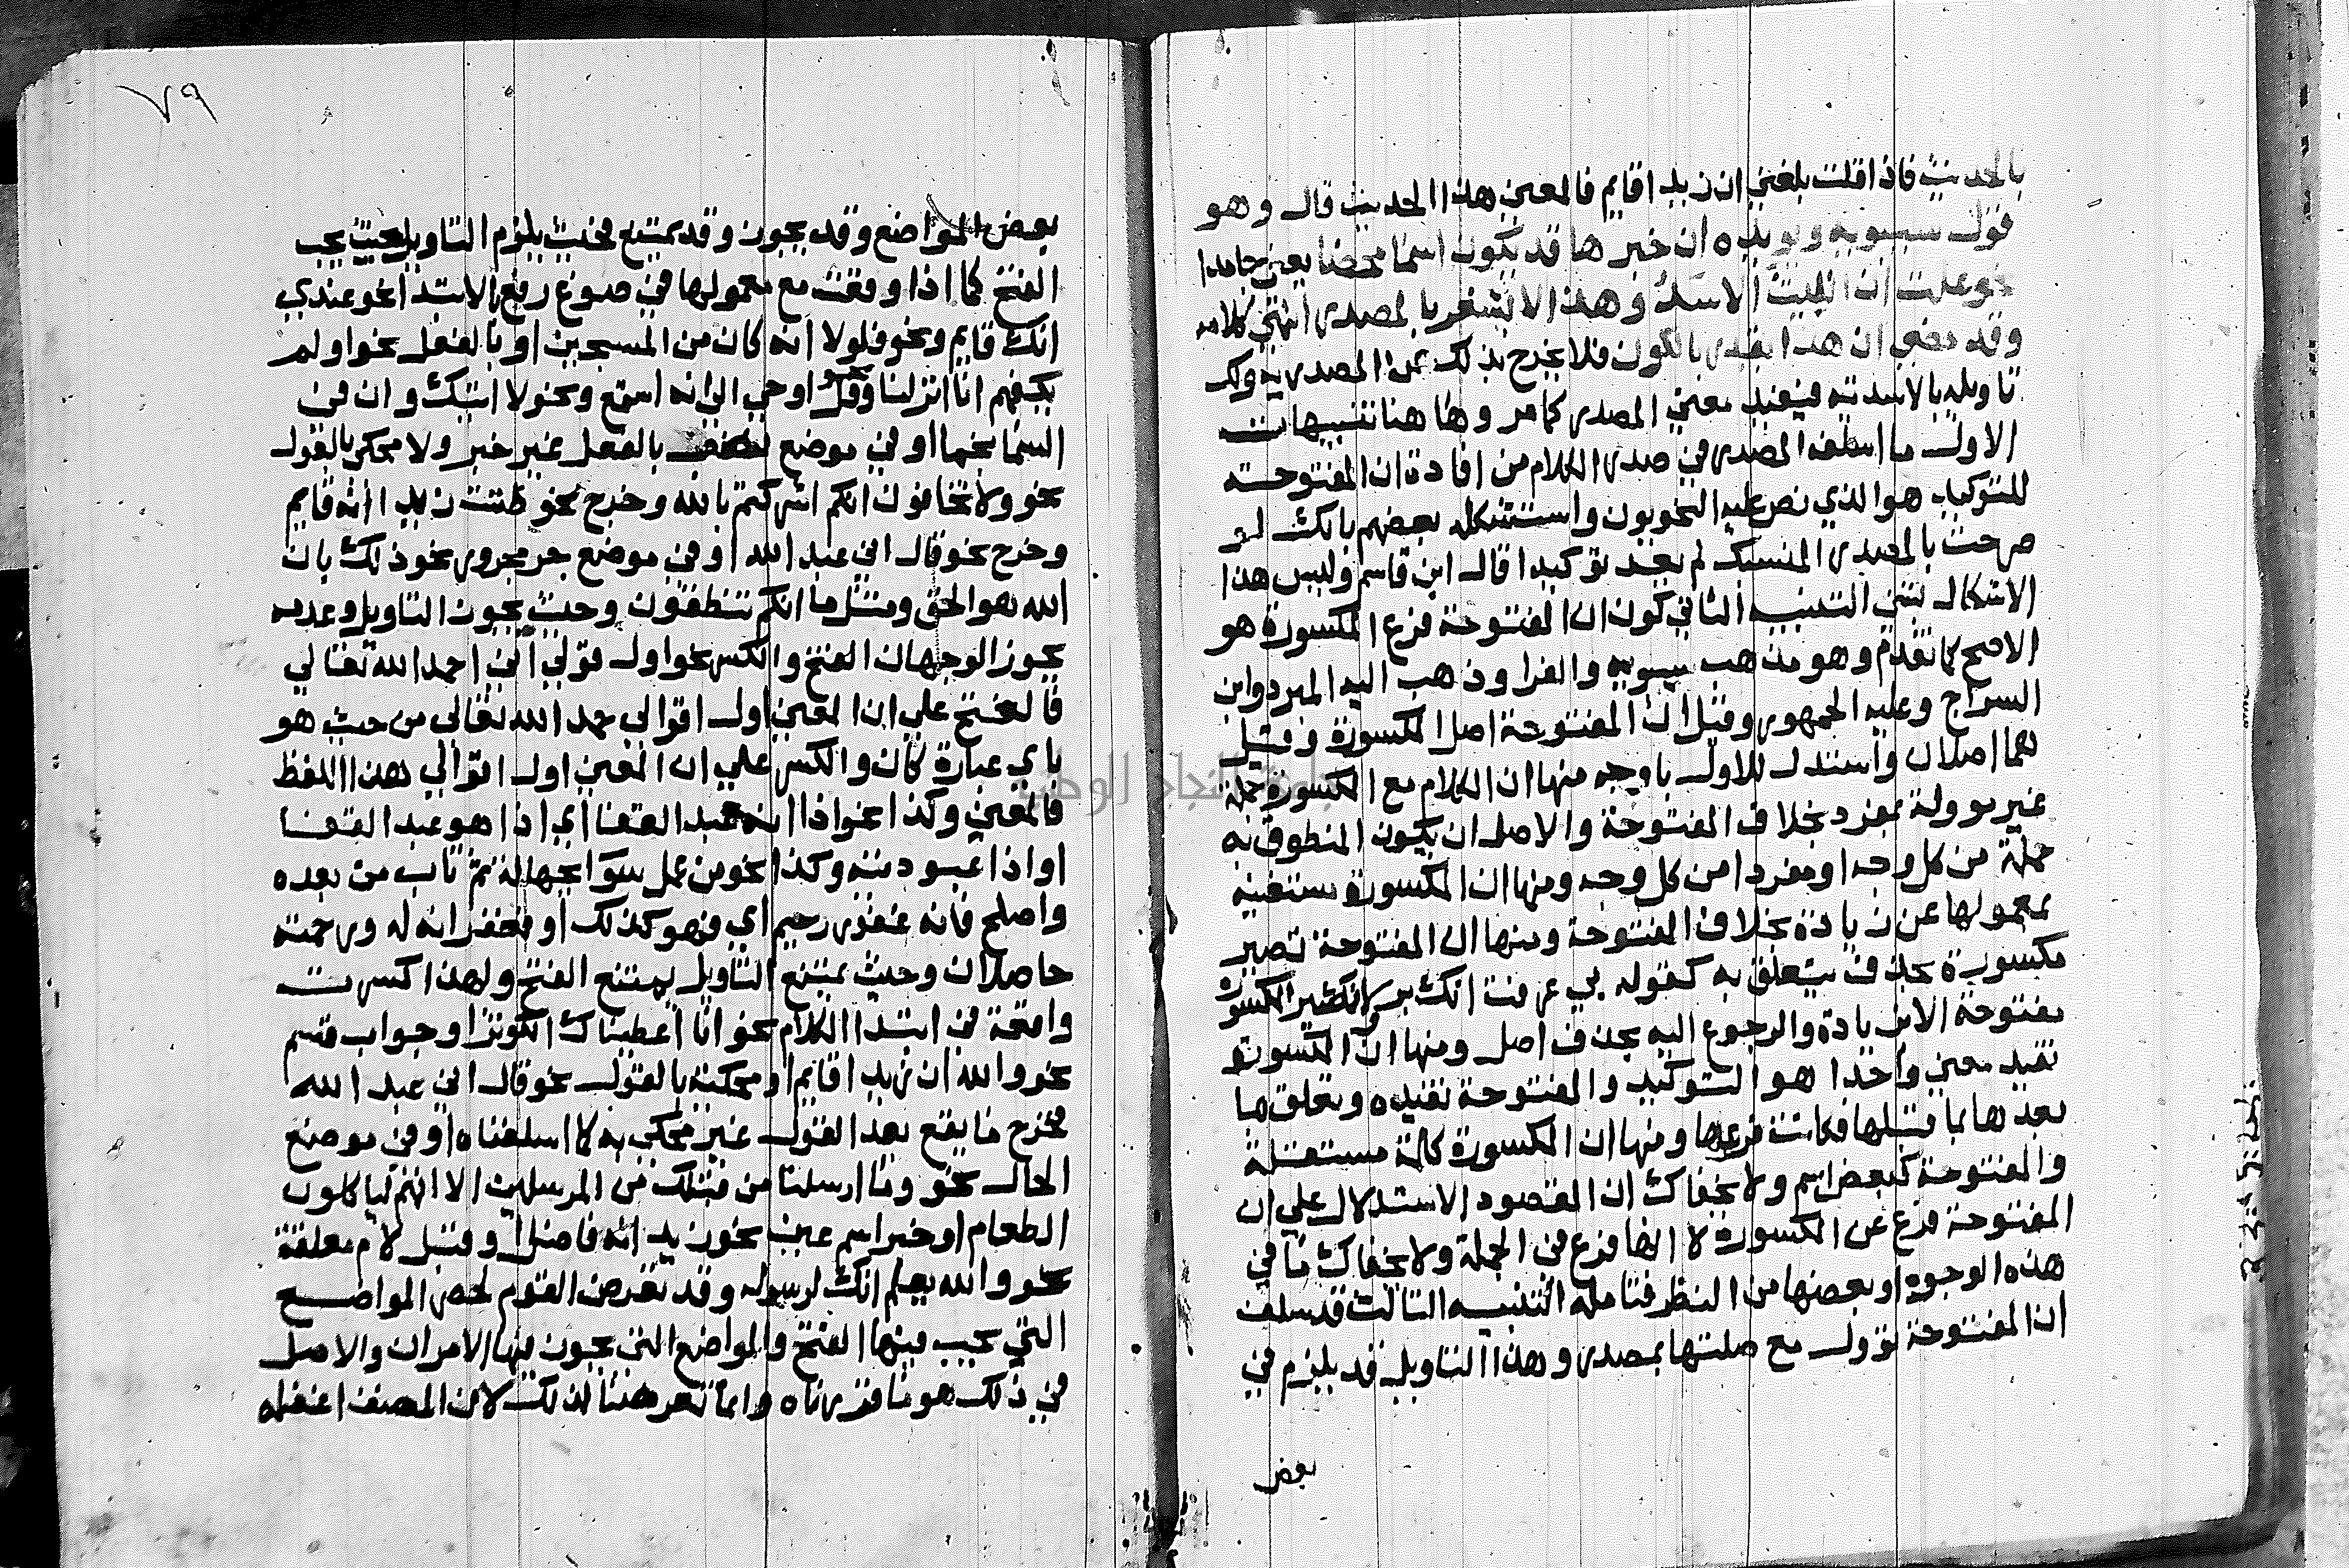 بالحديث فاذا قلت بلغني ان زيدا قايم فالمعني هذا الحديث قال وهو
قول سيبويه ويويده ان خبرها قد يكون اسما محضا يعني جامدا
نحو علمت ان الليث الاسد وهذا لا يشعر بالمصدر انتهي كلامه
وقد مضي ان هذا يقدر بالكون فلا يخرج بذلك عن المصدرية ولك
تاويله بالاسدية فيفيد معني المصدر كما مر وهاهنا تنبيهات
الاول ما اسلفه المصدر في صدر الكلام من افادة ان المفتوحة
للتوكيد هو الذي نص عليه النحويون واستشكله بعضهم بانك لو
صرحت بالمصدر المنسبك لم يفد توكيدا قال ابن قاسم وليس هذا
الاشكال بشي التنبيه الثاني كون ان المفتوحة فرع المكسورة هو
الاصح كما تقدم وهو مذهب سيبويه والفرا وذهب اليه المبرد وابن
السراج وعليه الجمهور وقيل ان المفتوحة اصل المكسورة وقيل
هما اصلان واستدل للاول باوجه منها ان الكلام مع المكسورة جملة
غير موولة بمفرد بخلاف المفتوحة والاصل ان يكون المنطوق به
جملة من كل وجه او مفردا من كل وجه ومنها ان المكسورة مستغنية
بمعمولها عن زيادة بخلاف المفتوحة ومنها ان المفتوحة تصير
مكسورة بحذف ما يتعلق به كقوله في عرفت انك بر انك بر ولا تصير المكسورة
مفتوحة الا بزيادة والرجوع اليه بحذف اصل ومنها ان المكسورة
تفيد معني واحدا هو التوكيد والمفتوحة تفيده وتعلق ما
بعدها بما قبلها فكانت فرعها ومنها ان المكسورة كالة مستقلة
والمفتوحة كبعض اسم ولا يخفاك ان المقصود الاستدلال علي ان
المفتوحة فرع عن المكسورة لا انها فرع في الجملة ولا يخفاك ما في
هذه الوجوه او بعضها من النظر فتامله التنبيه الثالث قد سلف
ان المفتوحة تؤول مع صلتها بمصدر وهذا التاويل قد يلزم في
بعض
٧٩
بعض المواضع وقد يجوز وقد يمتنع فحيث يلزم التاويل بحيث يجب
الفتح كما اذا وقعت مع معمولها في موضع رفع بالابتدا نحو عندي
انك قايم ونحو فلولا انه كان من المسبحين او بالفعل نحو اولم
يكفهم انا انزلنا ونحو قل اوحي الي انه استمع ونحو لا اتيك وان في
السما نجما او في موضع نصب بالفعل غير خبر ولا محكي بالقول
نحو ولا تخافون انكم اشركتم بالله وخرج نحو ظننت زيدا انه قايم
وخرج نحو قال اني عبد الله او في موضع جر مجرور نحو ذلك بان
الله هو الحق ومثل ما انكم تنطقون وحيث يجوز التاويل وعدمه
يجوز الوجهان الفتح والكسر نحو اول قولي اني احمد الله تعالي
فالفتح علي ان المعني اول اقوالي حمد الله تعالي من حيث هو
باي عبارة كان والكسر علي ان المعني اول اقوالي هذا اللفظ
فالمعني وكذا نحو اذا انه عبد القفا اي اذا هو عبد القفا
او اذا عبوديته وكذا نحو من عمل سوا بجهالة ثم تاب من بعده
واصلح فانه غفور رحيم اي فهو كذلك او فغفرانه له ورحمته
حاصلان وحيث يمتنع التاويل يمتنع الفتح ولهذا كسرت
واقعة في ابتدا الكلام نحو انا اعطيناك الكوثر او جواب قسم
نحو والله ان زيدا قايم او محكية بالقول نحو قال اني عبد الله
فخرج ما يقع بعد القول غير محكي به لما اسلفناه او في موضع
الحال نحو وما ارسلنا من قبلك من المرسلين الا انهم لياكلون
الطعام او خبر اسم عين نحو زيد انه فاضل او قبل لام معلقة
نحو والله يعلم انك لرسوله وقد تعرض القوم لحصر المواضع
التي يجب فيها الفتح والمواضع التي يجوز فيها الامران والاصل
في ذلك هو ما قررناه وانما تعرضنا لذلك لان المصنف اغفله
جامعة النجاح الوطنية